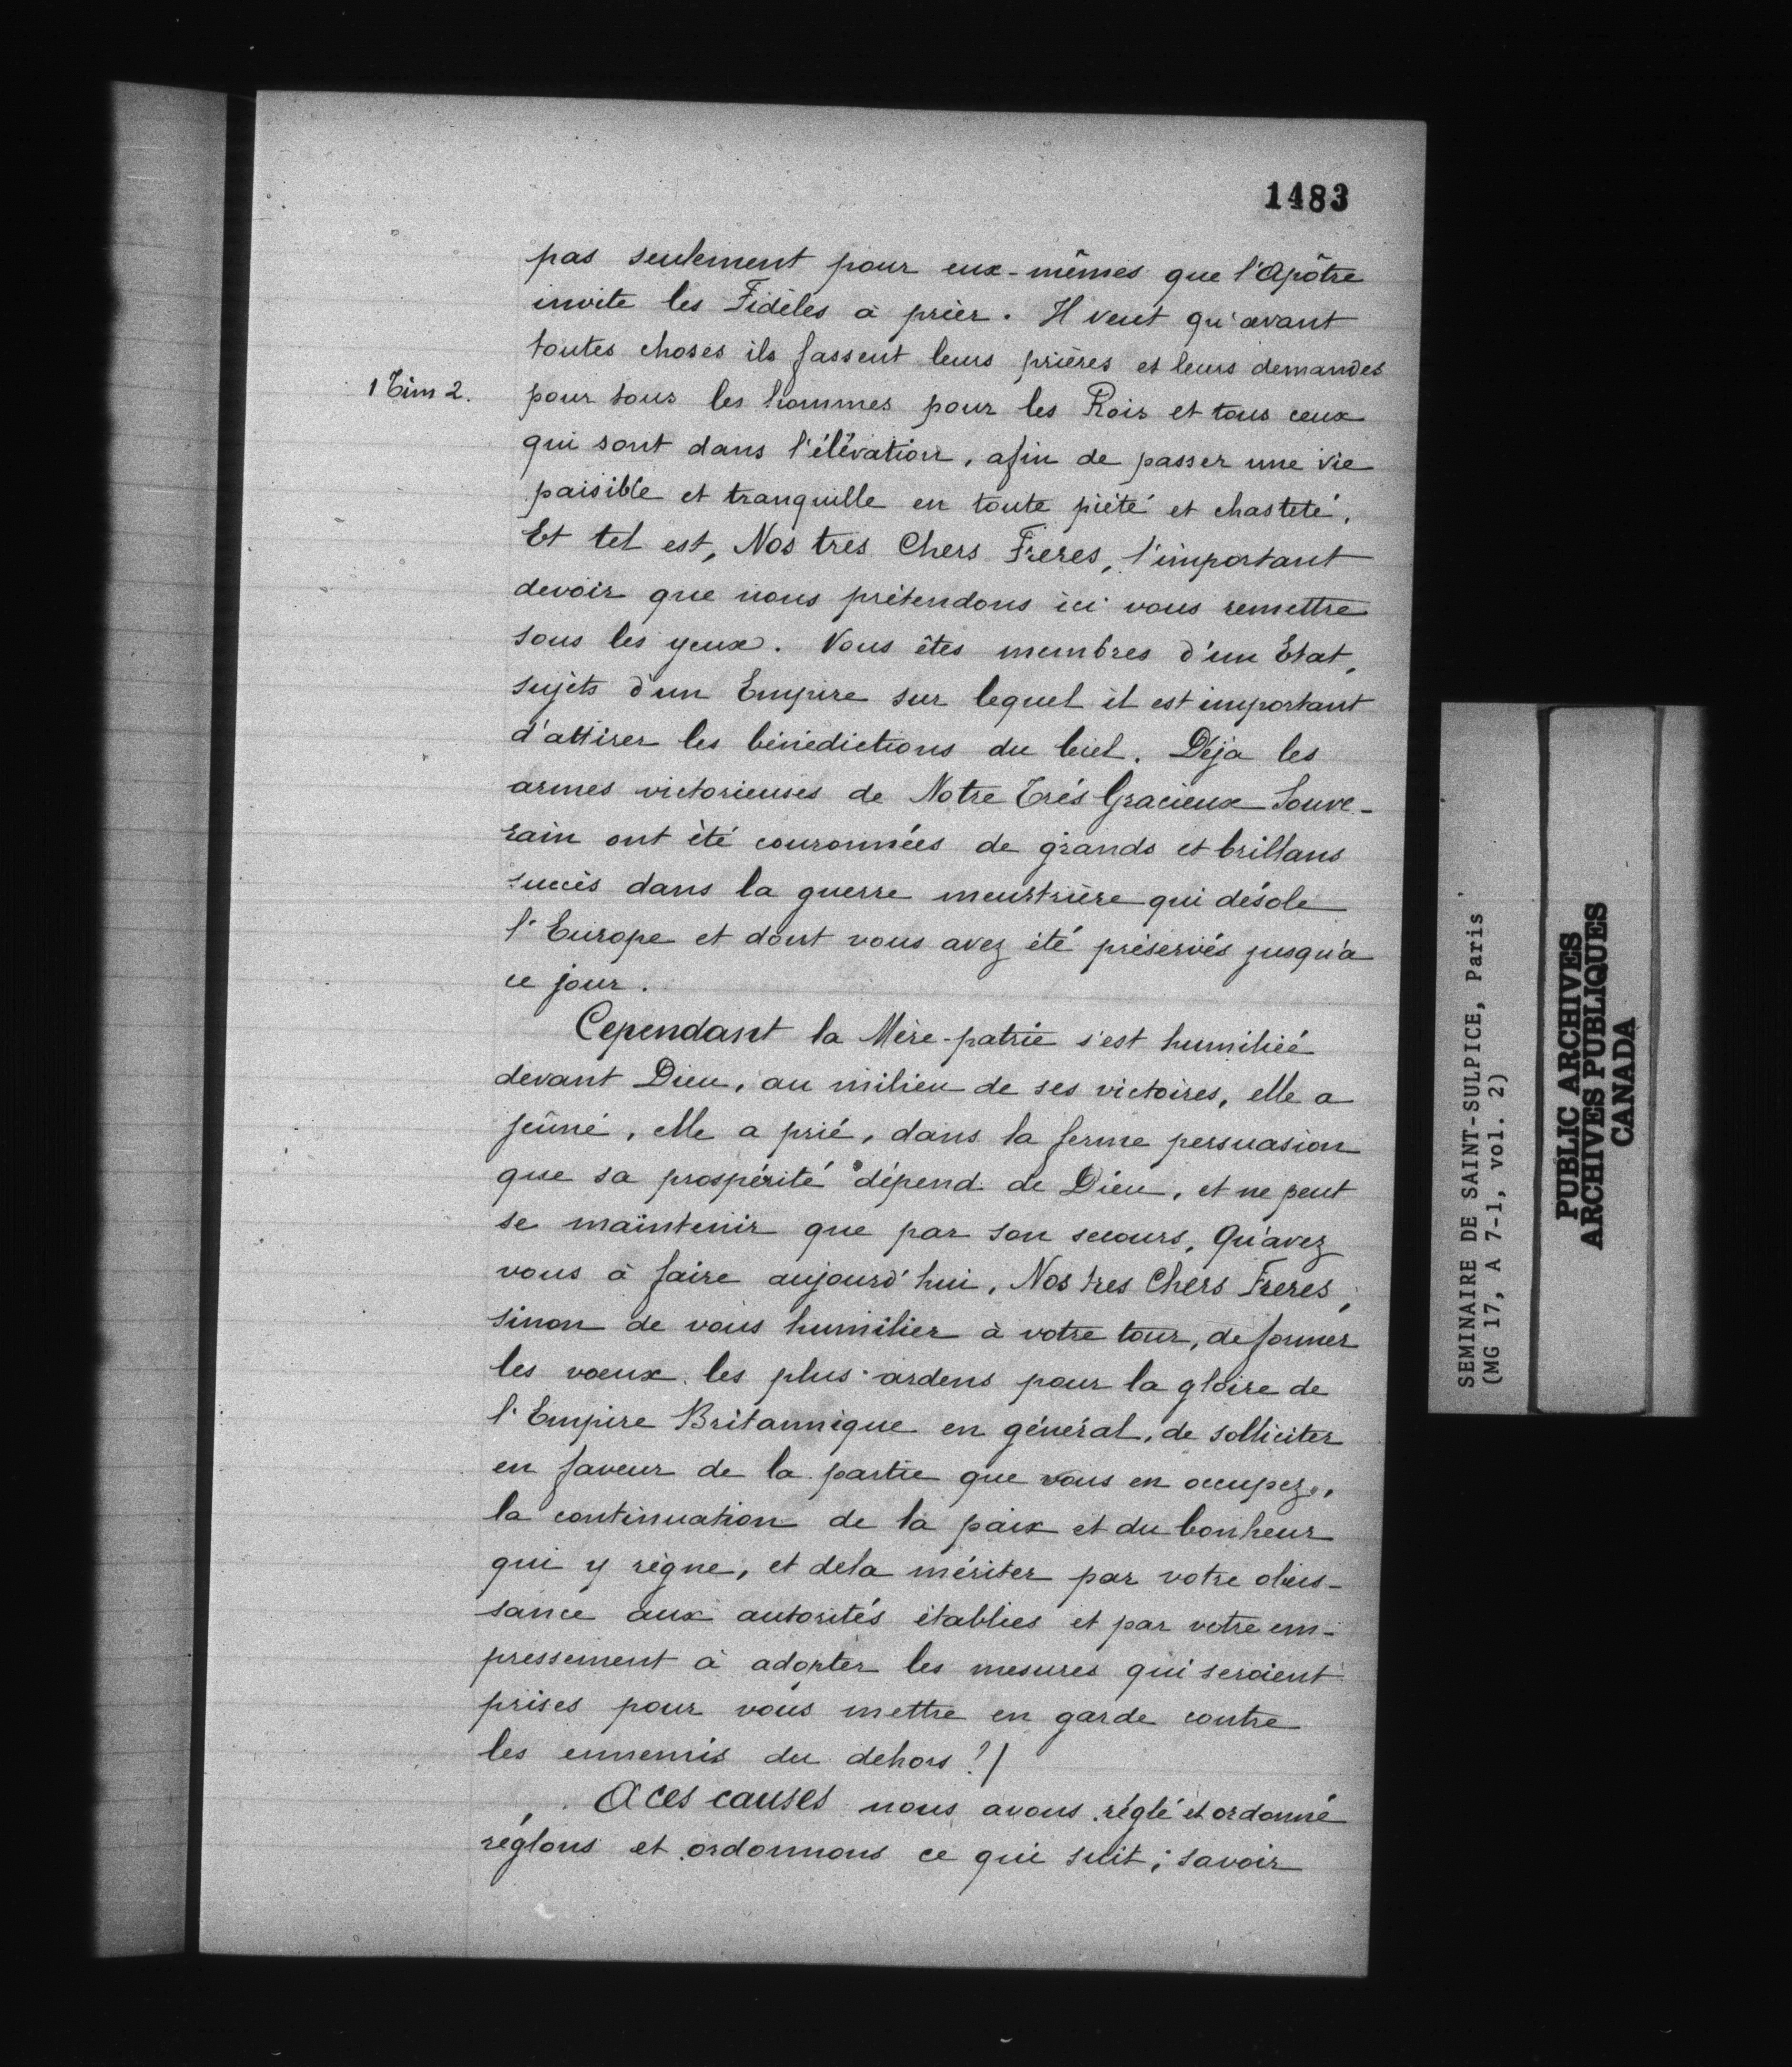 1483
pas seulement pour eux-mêmes que l'Apôtre
invite les Fidèles à prier. Il veut qu'avant
toutes choses ils fassent leurs prières et leurs demandes
1 Tim 2.
pour tous les hommes pour les Rois et tous ceux
qui sont dans l'élévation, afin de passer une vie
paisible et tranquille en toute piété et chasteté.
Et tel est, Nos très Chers Freres, l'important
devoir que nous prétendons ici vous remettre
sous les yeux. Vous êtes membres d'un Etat,
sujets d'un Empire sur lequel il est important
d'attirer les bénédictions du Ciel. Déja les
armes victorieuses de Notre Très Gracieux Souve-
rain ont été couronnées de grands et brillans
succès dans la guerre meurtrière qui désole
l'Europe et dont vous avez été préservés jusqu'à
ce jour.
Cependant la Mère-patrie s'est humiliée
devant Dieu, au milieu de ses victoires, elle a
jeûné, elle a prié, dans la ferme persuasion
que sa prospérité dépend de Dieu, et ne peut
se maintenir que par son secours. Qu'avez
vous à faire aujourd'hui, Nos tres Chers Freres,
sinon de vous humilier à votre tour, de former
les vœux les plus ardens pour la gloire de
l'Empire Britannique en général, de solliciter
en faveur de la partie que vous en occupez,
la continuation de la paix et du bonheur
qui y règne, et dela mériter par votre obéis-
sance aux autorités établies et par votre em-
pressement à adopter les mesures qui seroient
prises pour vous mettre en garde contre
les ennemis du dehors?/
A ces causes nous avons réglé et ordonné
réglons et ordonnons ce qui suit; savoir
SEMINAIRE DE SAINT-SULPICE, Paris
(MG 17, A 7-1, vol. 2)
PUBLIC ARCHIVES
ARCHIVES PUBLIQUES
CANADA